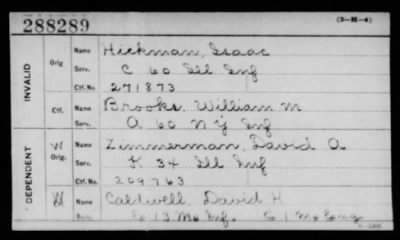 288289
(3-H-4)
INVALID
Orig
Name Hickman, Isaac
Serv. C 60 Ill Inf
Ctf. No. 271873
Ctf.
Name Brooks, William M
Serv. A 60 N Y Inf
DEPENDENT
W
Orig.
Name Zimmerman, David A
Serv. K 34 Ill Inf
Ctf. No. 209763
W
Name Caldwell, David H
Serv. 13 Mo Inf. 1 Mo